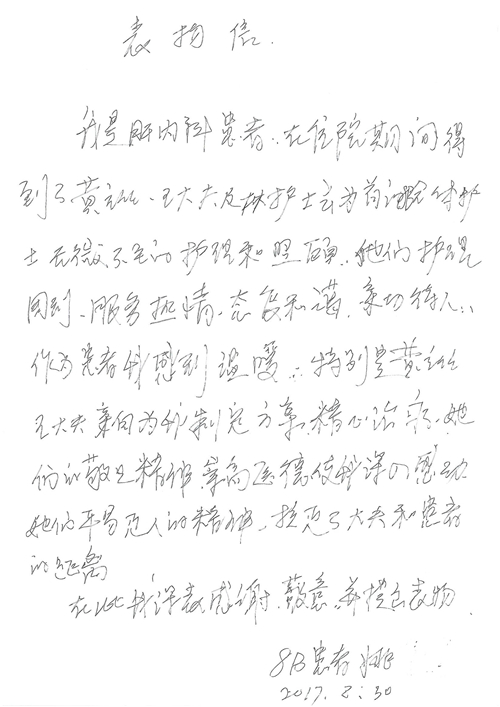 表扬信.
我是肝内科患者、在住院期间得
到了黄主任、王大夫及林护士为首的全体护
士无微不至的护理和照顾、她们护理
周到、服务热情、态度和蔼、亲切待人、
作为患者我感到温暖、特别是黄主任
王大夫亲自为我制定方案、精心治疗、她
们的敬业精神、崇高医德使我深深感动
她们平易近人的精神、拉近了大夫和患者
的距离
在此我深表感谢、致意、并提出表扬
8B患者
2017.8.30